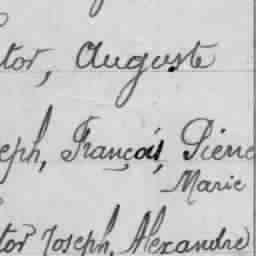 tor, Auguste
eph, François, Pierre
Marie
tor Joseph, Alexandre